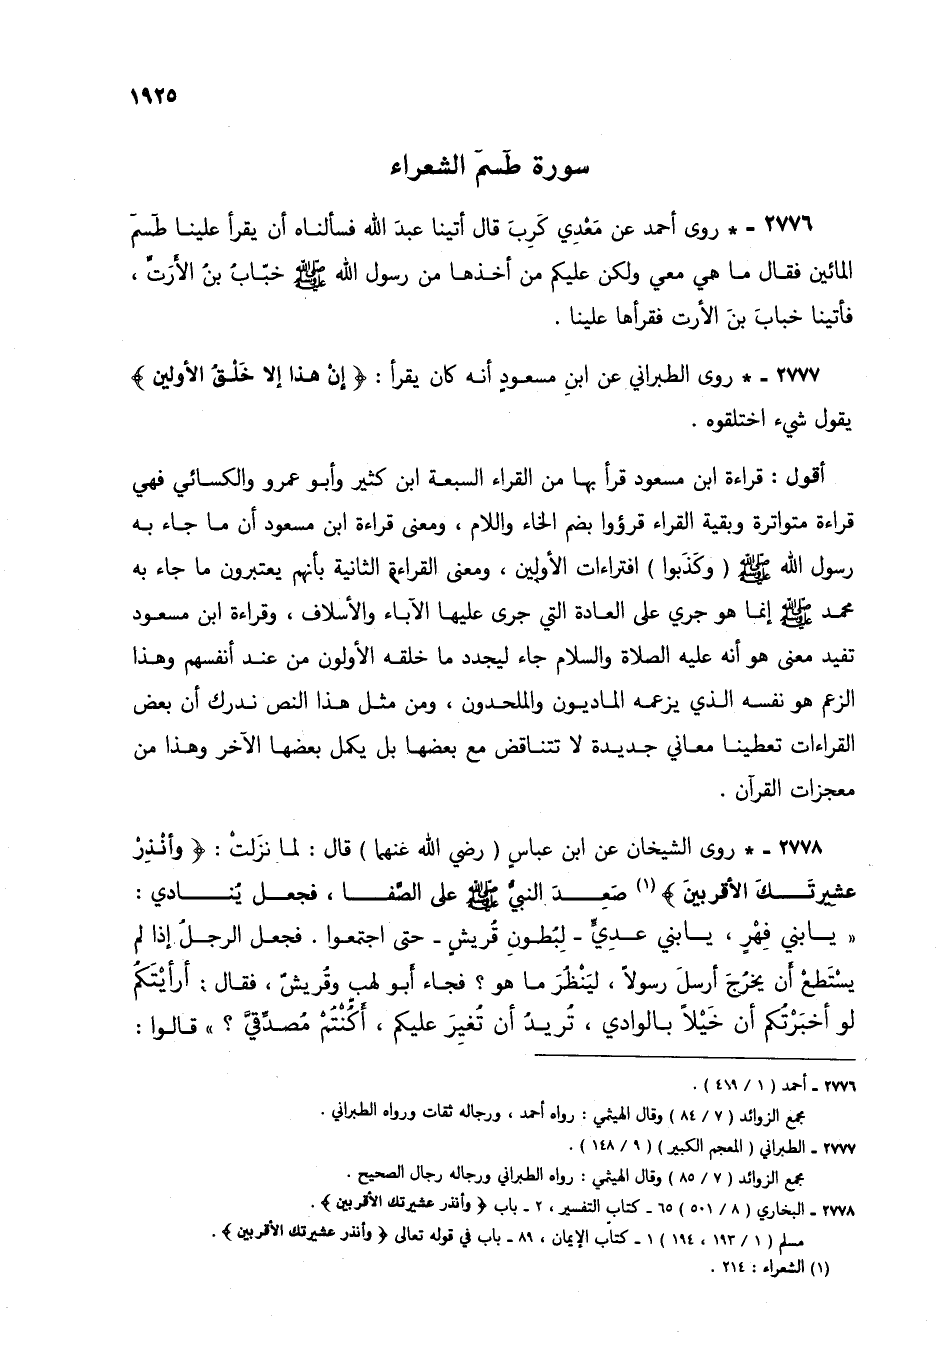 ١٩٢٥
سورة طَسمَ الشعراء
٢٧٧٦ - * روى أحمد عن مَعْدِي كَرِبَ قال أتينا عبدَ الله فسألناه أن يقرأ علينا طَسمَ
المائين فقال ما هي معي ولكن عليكم من أخذها من رسول الله ﷺ خبّابُ بنُ الأَرَتُّ ،
فأتينا خبابَ بنَ الأرت فقرأها علينا .
٢٧٧٧ - * روى الطبراني عن ابنِ مسعودٍ أنه كان يقرأ : ﴿ إنْ هذا إلا خَلْقُ الأولين ﴾
يقول شيء اختلقوه .
أقول : قراءة ابن مسعود قرأ بها من القراء السبعة ابن كثير وأبو عمرو والكسائي فهي
قراءة متواترة وبقية القراء قرؤوا بضم الخاء واللام ، ومعنى قراءة ابن مسعود أن ما جاء به
رسول الله ﷺ ( وكَذَبوا ) افتراءات الأولين ، ومعنى القراءة الثانية بأنهم يعتبرون ما جاء به
محمد ﷺ إنما هو جري على العادة التي جرى عليها الآباء والأسلاف ، وقراءة ابن مسعود
تفيد معنى هو أنه عليه الصلاة والسلام جاء ليجدد ما خلقه الأولون من عند أنفسهم وهذا
الزعم هو نفسه الذي يزعمه الماديون والملحدون ، ومن مثل هذا النص ندرك أن بعض
القراءات تعطينا معاني جديدة لا تتناقض مع بعضها بل يكمل بعضها الآخر وهذا من
معجزات القرآن .
٢٧٧٨ - * روى الشيخان عن ابن عباسٍ ( رضي الله عنهما ) قال : لما نزَلتْ : ﴿ وأنْذِرْ
عشيرتَكَ الأقربينَ ﴾ (١) صَعِدَ النبيُّ ﷺ على الصَّفا ، فجعل يُنادي :
« يابني فِهْرٍ ، يابني عديٍّ - لبُطونِ قُريشٍ - حتى اجتمعوا . فجعل الرجلُ إذا لم
يسْتطعْ أن يخرُجَ أرسلَ رسولاً ، ليَنْظُرَ ما هو ؟ فجاء أبو لهبٍ وقُريشٌ ، فقال : أرأيْتَكُم
لو أخبَرْتُكم أن خَيْلاً بالوادي ، تُريدُ أن تُغيرَ عليكم ، أكُنْتُمْ مُصدِّقيَّ ؟ » قالوا :
٢٧٧٦ - أحمد ( ١ / ٤١٩ ) .
مجمع الزوائد ( ٧ / ٨٤ ) وقال الهيثمي : رواه أحمد ، ورجاله ثقات ورواه الطبراني .
٢٧٧٧ - الطبراني ( المعجم الكبير ) ( ٩ / ١٤٨ ) .
مجمع الزوائد ( ٧ / ٨٥ ) وقال الهيثمي : رواه الطبراني ورجاله رجال الصحيح .
٢٧٧٨ - البخاري ( ٨ / ٥٠١ ) ٦٥ - كتاب التفسير ، ٢ - باب ﴿ وأنذر عشيرتك الأقربين ﴾ .
مسلم ( ١ / ١٩٣ ، ١٩٤ ) ١ - كتاب الإيمان ، ٨٩ - باب في قوله تعالى ﴿ وأنذر عشيرتك الأقربين ﴾ .
(١) الشعراء : ٢١٤ .